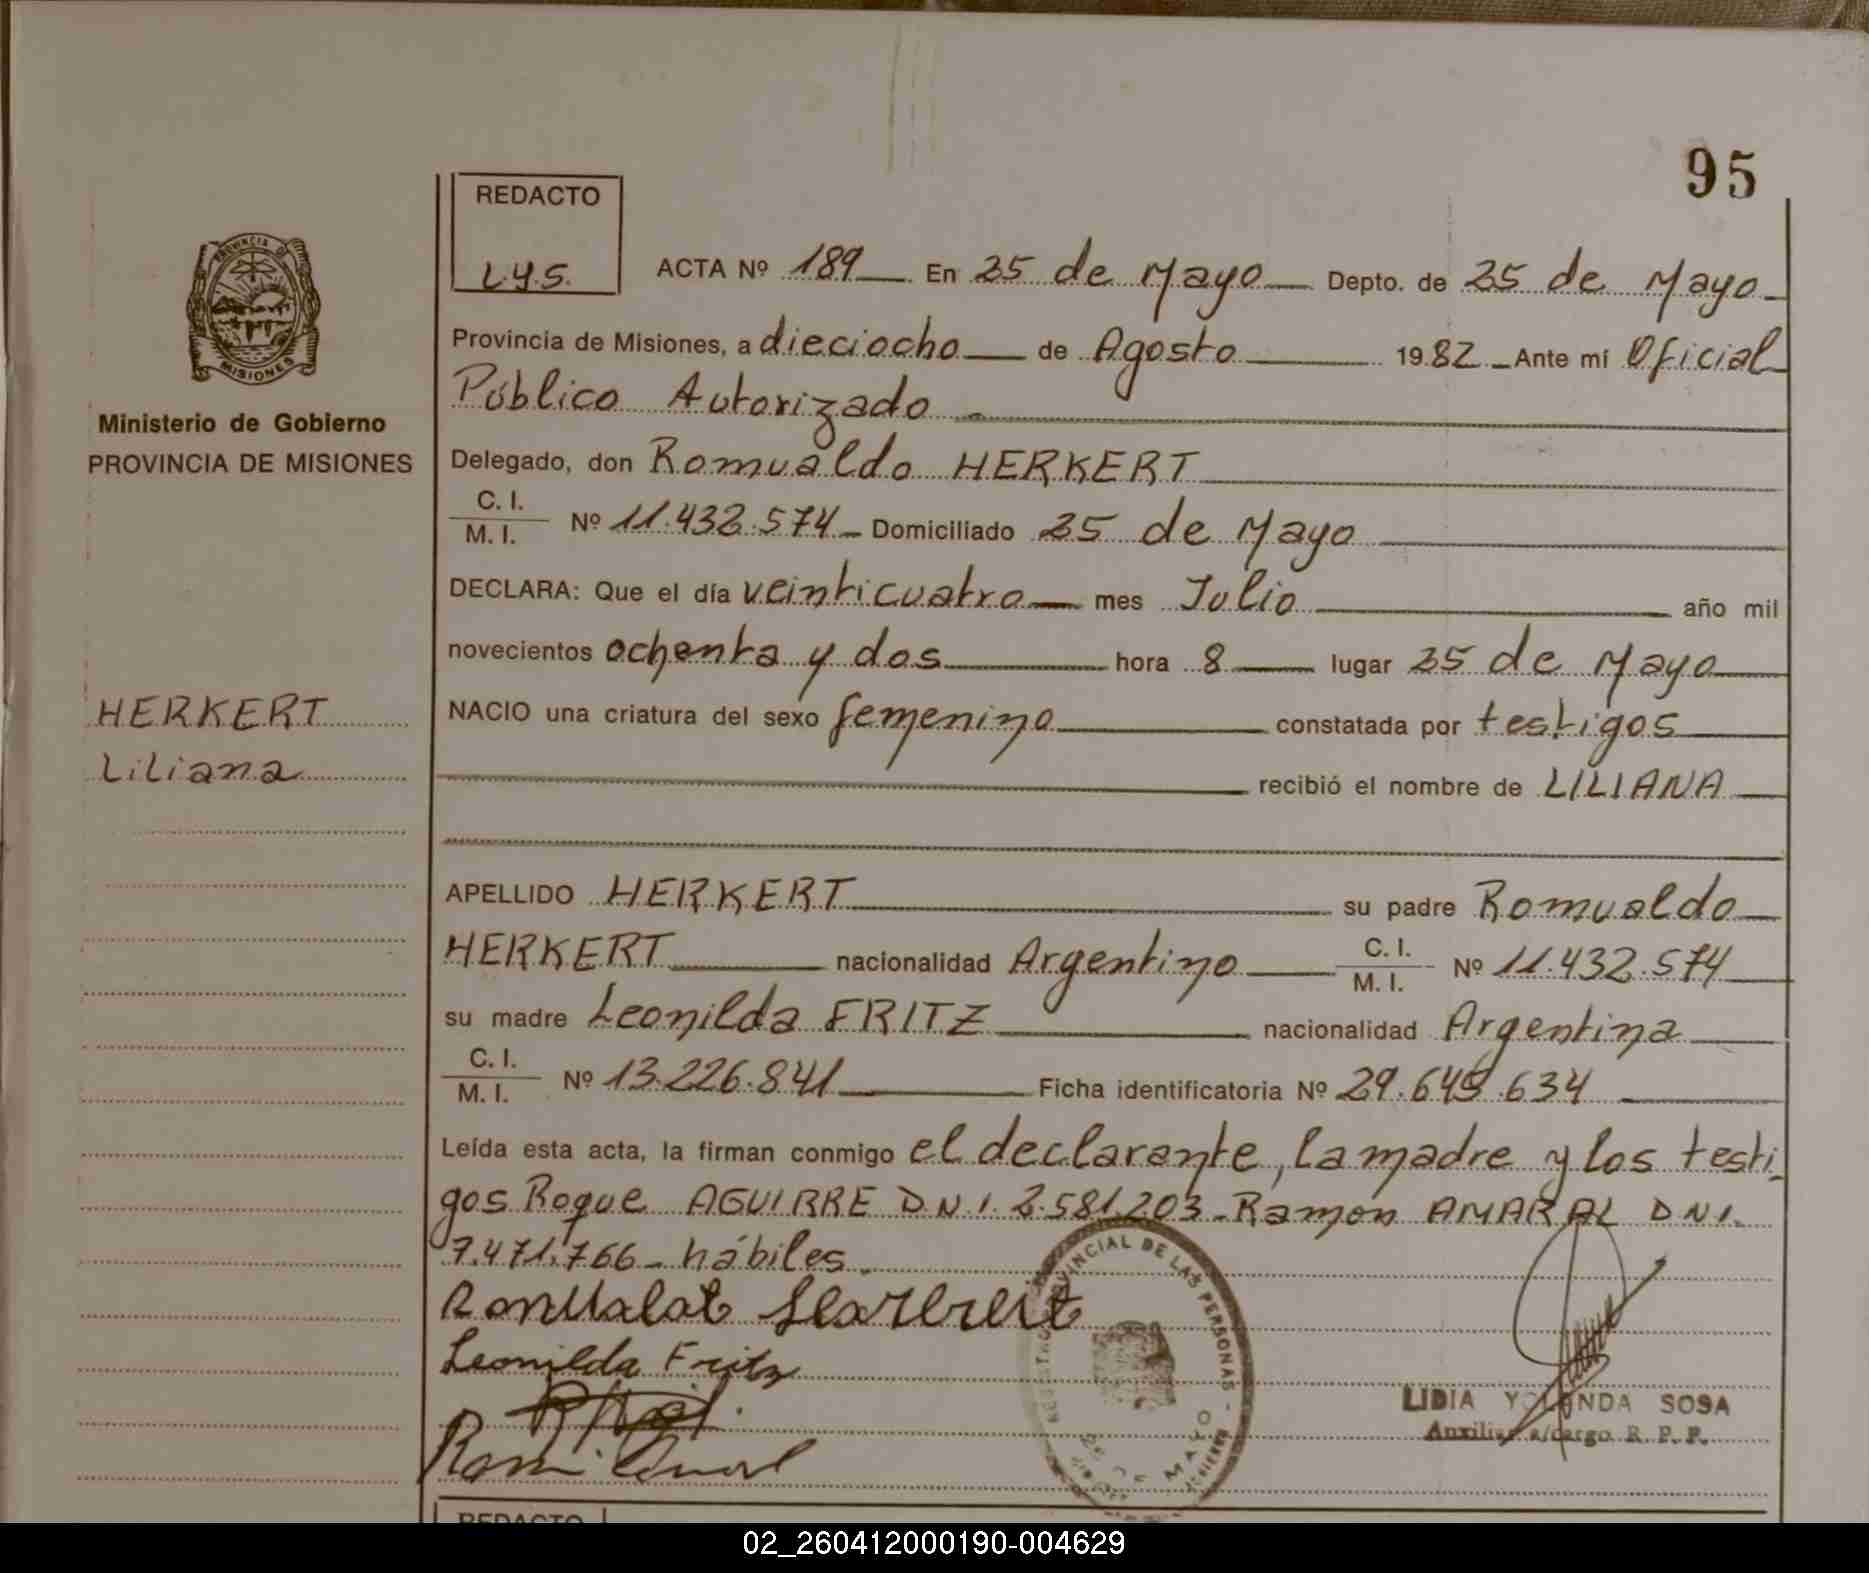 95
REDACTO
L.Y.S.
ACTA Nº 189 En 25 de Mayo Depto. de 25 de Mayo
Provincia de Misiones, a dieciocho de Agosto 1982 Ante mí Oficial
Público Autorizado
Delegado, don Romualdo HERKERT
C. I.
M. I. Nº 11.432.574 Domiciliado 25 de Mayo
DECLARA: Que el día veinticuatro mes Julio año mil
novecientos ochenta y dos hora 8 lugar 25 de Mayo
NACIO una criatura del sexo femenino constatada por testigos
recibió el nombre de LILIANA
APELLIDO HERKERT su padre Romualdo
HERKERT nacionalidad Argentino C. I.
M. I. Nº 11.432.574
su madre Leonilda FRITZ nacionalidad Argentina
C. I.
M. I. Nº 13.226.841 Ficha identificatoria Nº 29.649.634
Leída esta acta, la firman conmigo el declarante, la madre y los testi-
gos Roque AGUIRRE D.N.I. 2.581.203 - Ramón AMARAL D.N.I.
7.471.766 - hábiles.
Leonilda Fritz
PROVINCIA DE MISIONES
Ministerio de Gobierno
PROVINCIA DE MISIONES
HERKERT
Liliana
PROVINCIAL DE LAS PERSONAS
25 DE MAYO
LIDIA YOLANDA SOSA
Auxiliar a/cargo R. P. P.
REDACTO
02_260412000190-004629